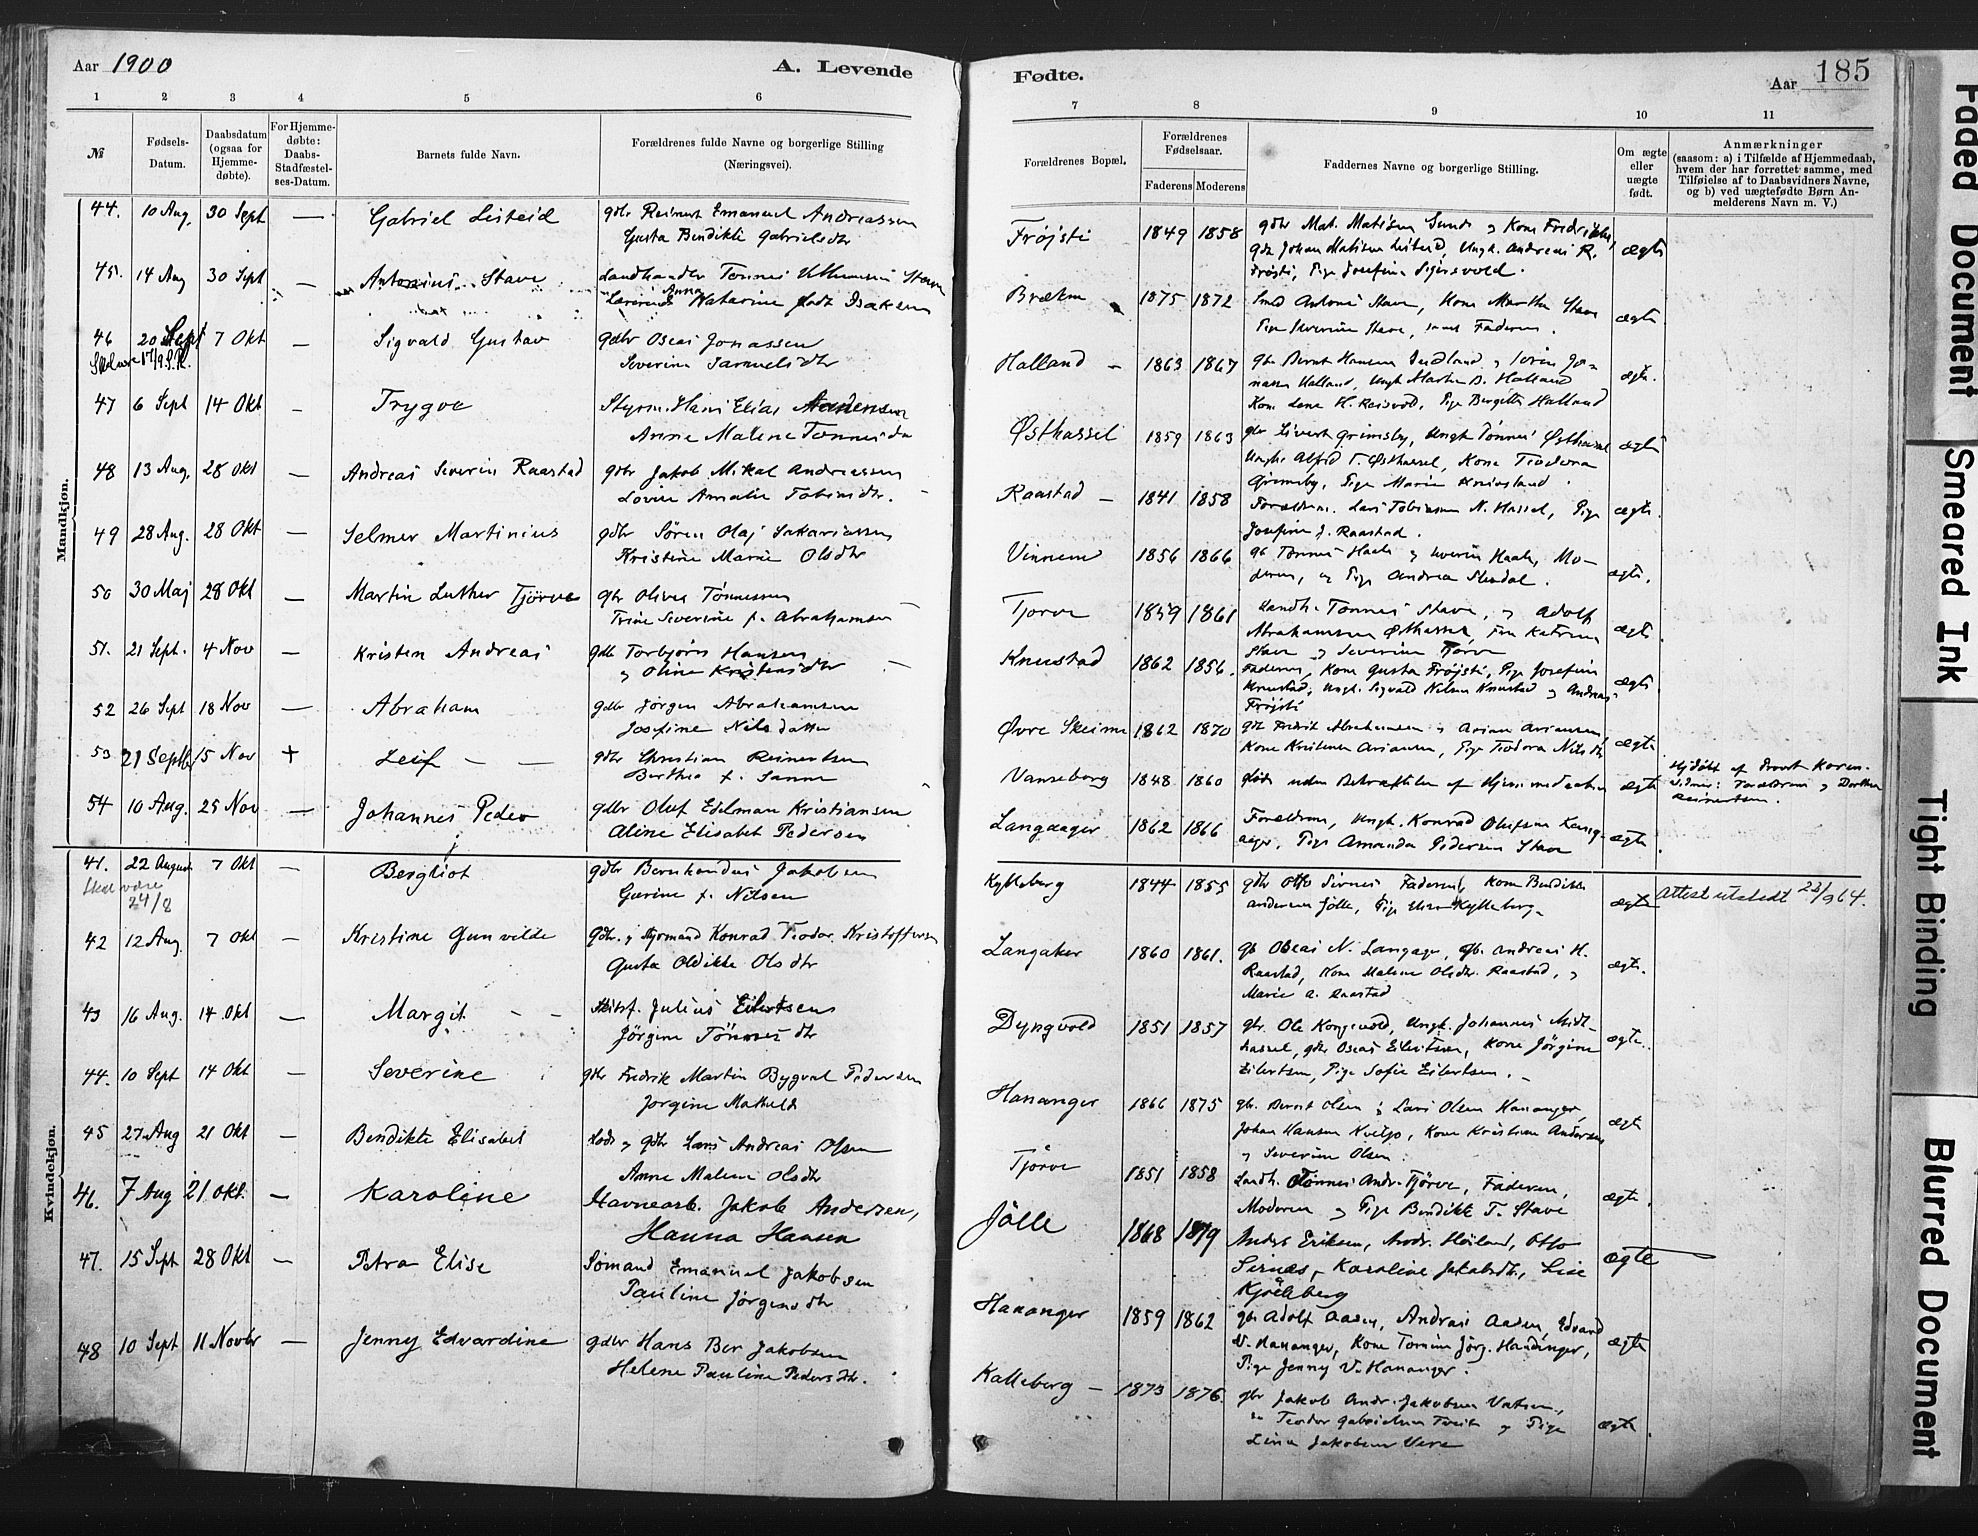 Aar 1900
A. Levende
1 2 3 4 5 6
№
Fødsels-
Datum.
Daabsdatum
(ogsaa for
Hjemme-
døbte).
For Hjemme-
døbte:
Daabs-
Stadfæstel-
ses-Datum.
Barnets fulde Navn.
Forældrenes fulde Navne og borgerlige Stilling
(Næringsvei).
Mandkjøn.
44. 10 Aug. 30 Sept — Gabriel Listeid gdbr Reinert Emanuel Andreassen
Gusta Bendikte Gabrielsdtr
45. 14 Aug 30 Sept — Antonius Stave Landhandler Tønnes
Anna
Katarine født Isaksen
46 20 Sept 7 Okt — Sigvald Gustav Gdbr Oscar Jonassen
Skal være 17/9 S.R.
Severine Samuelsdtr
47 6 Sept 14 Okt — Trygve Styrm. Hans Elias
Anne Malene Tønnesdtr
48 13 Aug. 28 Okt — Andreas Severin Raastad gdbr Jakob Mikal Andreassen
Lovise Amalie Tobiasdtr.
49 28 Aug. 28 Okt — Selmer Martinius gdbr Søren Olaj Sakariassen
Kristine Marie Olsdtr
50 30 Maj 28 Okt — Martin Luther Tjörve gbr Oliver Tønnessen
Trine Severine f. Abrahamsen
51. 21 Sept. 4 Nov — Kristen Andreas gdb Torbjörn Hansen
og Oline Kristensdtr
52 26 Sept 18 Nov — Abraham gdbr Jörgen Abrahamsen
Josefine Nilsdatter
53 21 Septbr 15 Nov + Leif — — gdbr Christian Reinertsen
Berthea f. Sanne
54 10 Aug. 25 Nov — Johannes Peder gdbr Oluf Edelman Kristiansen
Aline Elisabet Pedersen
Kvindekjøn.
41. 22 August 7 Okt — Bergliot gdbr Bernhardus Jakobsen
Skal være
24/8
Gurine f. Nilsen
42 12 Aug. 7 Okt — Kristine Gunvilde Gdbr. og Styrmand Konrad Teodor Kristoffersen
Gusta Oldikke Olsdtr
43 16 Aug. 14 Okt — Margit — — Julius Eilertsen
Jörgine Tönnesdtr
44. 10 Sept 14 Okt — Severine gdbr Fredrik Martin Bygvel Pedersen
Jorgine Mathilde
45 27 Aug 21 Okt — Bendikte Elisabet Lods og gdbr Lars Andreas Olsen
Anne Malene Olsdtr
46. 7 Aug 21 Okt. — Karoline Havnearb. Jakob Andersen,
Hanna Hansen
47. 15 Sept 28 Okt — Petra Elise Sömand Emanuel Jakobsen
Pauline Jörgensdtr
48 10 Sept 11 Novbr — Jenny Edvardine gdbr Hans Ber Jakobsen
Helene Pauline Pedersdtr.
Fødte.
Aar 185
7 8 9 10 11
Forældrenes Bopæl.
Forældrenes
Fødselsaar.
Faderens Moderens
Faddernes Navne og borgerlige Stilling.
Om ægte
eller
uægte
født.
Anmærkninger
(saasom: a) i Tilfælde af Hjemmedaab,
hvem der har forrettet samme, med
Tilføielse af to Daabsvidners Navne,
og b) ved uægtefødte Børn An-
melderens Navn m. V.)
Fröjsti 1849 1858 gdbr Mat. Matisen Sunde og Kone Fredrikke,
Johan Matisen Listeid, Ungk. Andreas R. ægte
Fröjsti, Pige Josefine Sigersvold.
Brekne 1875 1872 Smed Antoni Stave, Kone Martha Stave
Pige Severine Stave, samt Faderen. ægte
Halland — 1863 1867 gbr Bernt Hansen og Sörine Jo-
nassen Halland, Ungk Martin B. Halland ægte.
Kone Lene H. Reisvold, Pige Bergitte Halland
Østhassel 1859 1863 gbr Sivert Grimsby, Ungk Tönnes Østhassel ægte
Ungk. Alfred T. Østhassel, Kone Teodora
Grimsby, Pige Marie
Raastad — 1841 1858 Forældrene. Lars Tobiassen N. Hassel, Pige ægte.
Josefine J. Raastad.
Vinnem 1856 1866 gb Tönnes Haale og Severin Haale, Mo-
deren, og Pige Andrea Skeidal. ægte.
Tjorve 1859 1861 Landh. Tönnes Stave, og Adolf
Abrahamsen Østhassel, Fru Katrine ægte.
Stave og Severine Tjorve
Knustad 1862 1856. Faderen, Kone Gusta Fröjsti, Pige Josefine
Knustad, Ungk. Sigvald Nilsen Knustad og Andreas ægte.
Fröjsti
Øvre Skeime 1862 1870 gb Fredrik Abrahamsen og Arian Ariansen,
Kone Kristense Ariansen, Pige Teodora Nilsdtr ægte
Vanseborg 1848 1860 døde uden Bekræftelse af Hjemmedaaben ægte
Hjdöbt af Provst Koren.
Vidner: Forældrene og Dorthea
Reinertsen.
Langaager 1862 1866 Forældrene, Ungk. Konrad Olufsen Lang-
aager, Pige Amanda Pedersen Stave ægte.
Kylleberg 1844 1855 gdbr Otto Sirnes Faderen, Kone Bendikte
Andersen Jölle, Pige Kylleberg. ægte Attest utstedt 23/9 64.
Langaker 1860 1861. gb Oscar N. Langager, gb. Andreas H.
Raastad, Kone Malene Olsdtr. Raastad, og ægte.
Marie A. Raastad
Dyngvold 1851 1857 gbr. Ole Kongevold, Ungk. Johannes Midt-
hassel, gdbr Oscar Eilertsen, Kone Jörgine ægte.
Eilertsen, Pige Sofie Eilertsen.
Hananger 1866 1875 gbr. Bernt Olsen og Lars Olsen Hananger,
Johan Hansen Kviljo, Kone Kristine Andersen ægte
og Severine Olsen.
Tjörve 1851 1858 Landh. Tönnes Andr. Tjörve, Faderen,
Moderen og Pige Bendikte T. Stave ægte.
Jölle 1868 1879 Anders Eriksen, Andr. Höiland, Otto
Sirnes, Karoline Jakobsdtr., Line ægte
Kjölleberg
Hananger 1859 1862 gbr Adolf Aasen, Andreas Aasen, Edvard
V. Hananger, Kone Tomine Jörg. Hananger, ægte
Pige Jenny V. Hananger.
Kalleberg — 1873 1876. gbr Jakob Andr. Jakobsen Vatsen,
Teodor Gabrielsen Tveit og Pige ægte.
Lina Jakobsen Vere
Faded Document
Smeared Ink
Tight Binding
Blurred Document